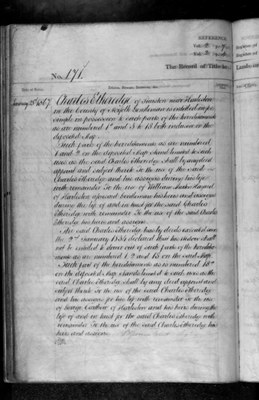 REFERENCE
No. 171.
The Record of Title to
January 28th 1867
Charles Etheredge of Starston near Harleston
in the County of Norfolk Gentleman is entitled in fee
simple in possession to such parts of the hereditaments
as are numbered 1 and 3 to 18 both inclusive on the
deposited Map.
Such parts of the hereditaments as are numbered
1 and 2 on the deposited Map stand limited to such
uses as the said Charles Etheredge shall by any deed
appoint and subject thereto to the use of the said
Charles Etheredge and his assigns during his life
with remainder to the use of William
of Harleston aforesaid Gentleman his heirs and assigns
during the life of and in trust for the said Charles
Etheredge with remainder to the use of the said Charles
Etheredge his heirs and assigns.
The said Charles Etheredge has by deeds executed on
the 2nd January 1835 declared that his widow shall
not be entitled to dower out of such parts of the heredita-
ments as are numbered 1, 2 and 18 on the said Map.
Such part of the hereditaments as is numbered 18
on the deposited Map stands limited to such uses as the
said Charles Etheredge shall by any deed appoint and
subject thereto to the use of the said Charles Etheredge
and his assigns for his life with remainder to the use
of George Carthew of Harleston and his heirs during the
life of and in trust for the said Charles Etheredge with
remainder to the use of the said Charles Etheredge his
heirs and assigns.